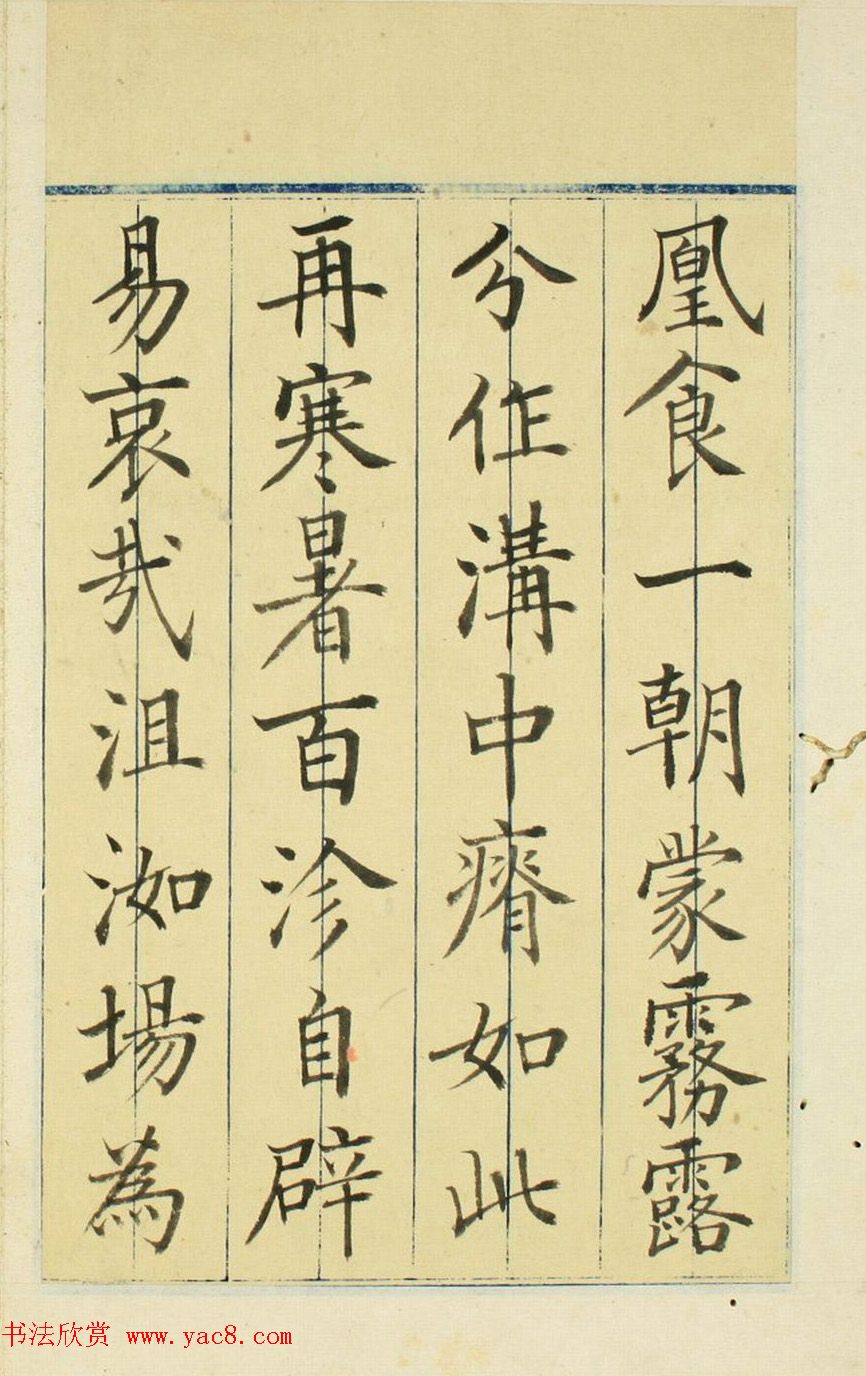 凰食一朝蒙霧露
分作溝中瘠如此
再寒暑百沴自辟
易哀哉沮洳場為
书法欣赏 www.yac8.com